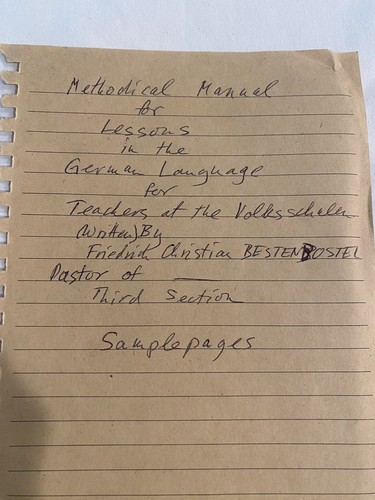 Methodical Manual
for
Lessons
in the
German Language
for
Teachers at the Volksschulen
(written) By
Friedrich Christian BESTENBOSTEL
Pastor of ______
Third Section
Samplepages